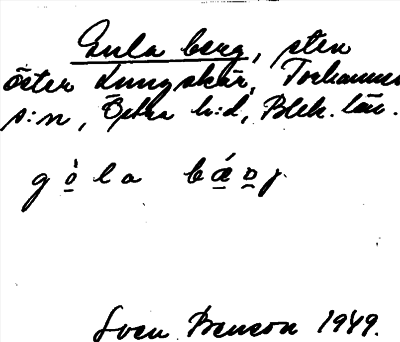 Gula berg, sten
öster Långskär, Torhamns
s:n, Östra h:d, Blek. län.
gò̠la bǽ̠o̠r
Sven Benson 1949.